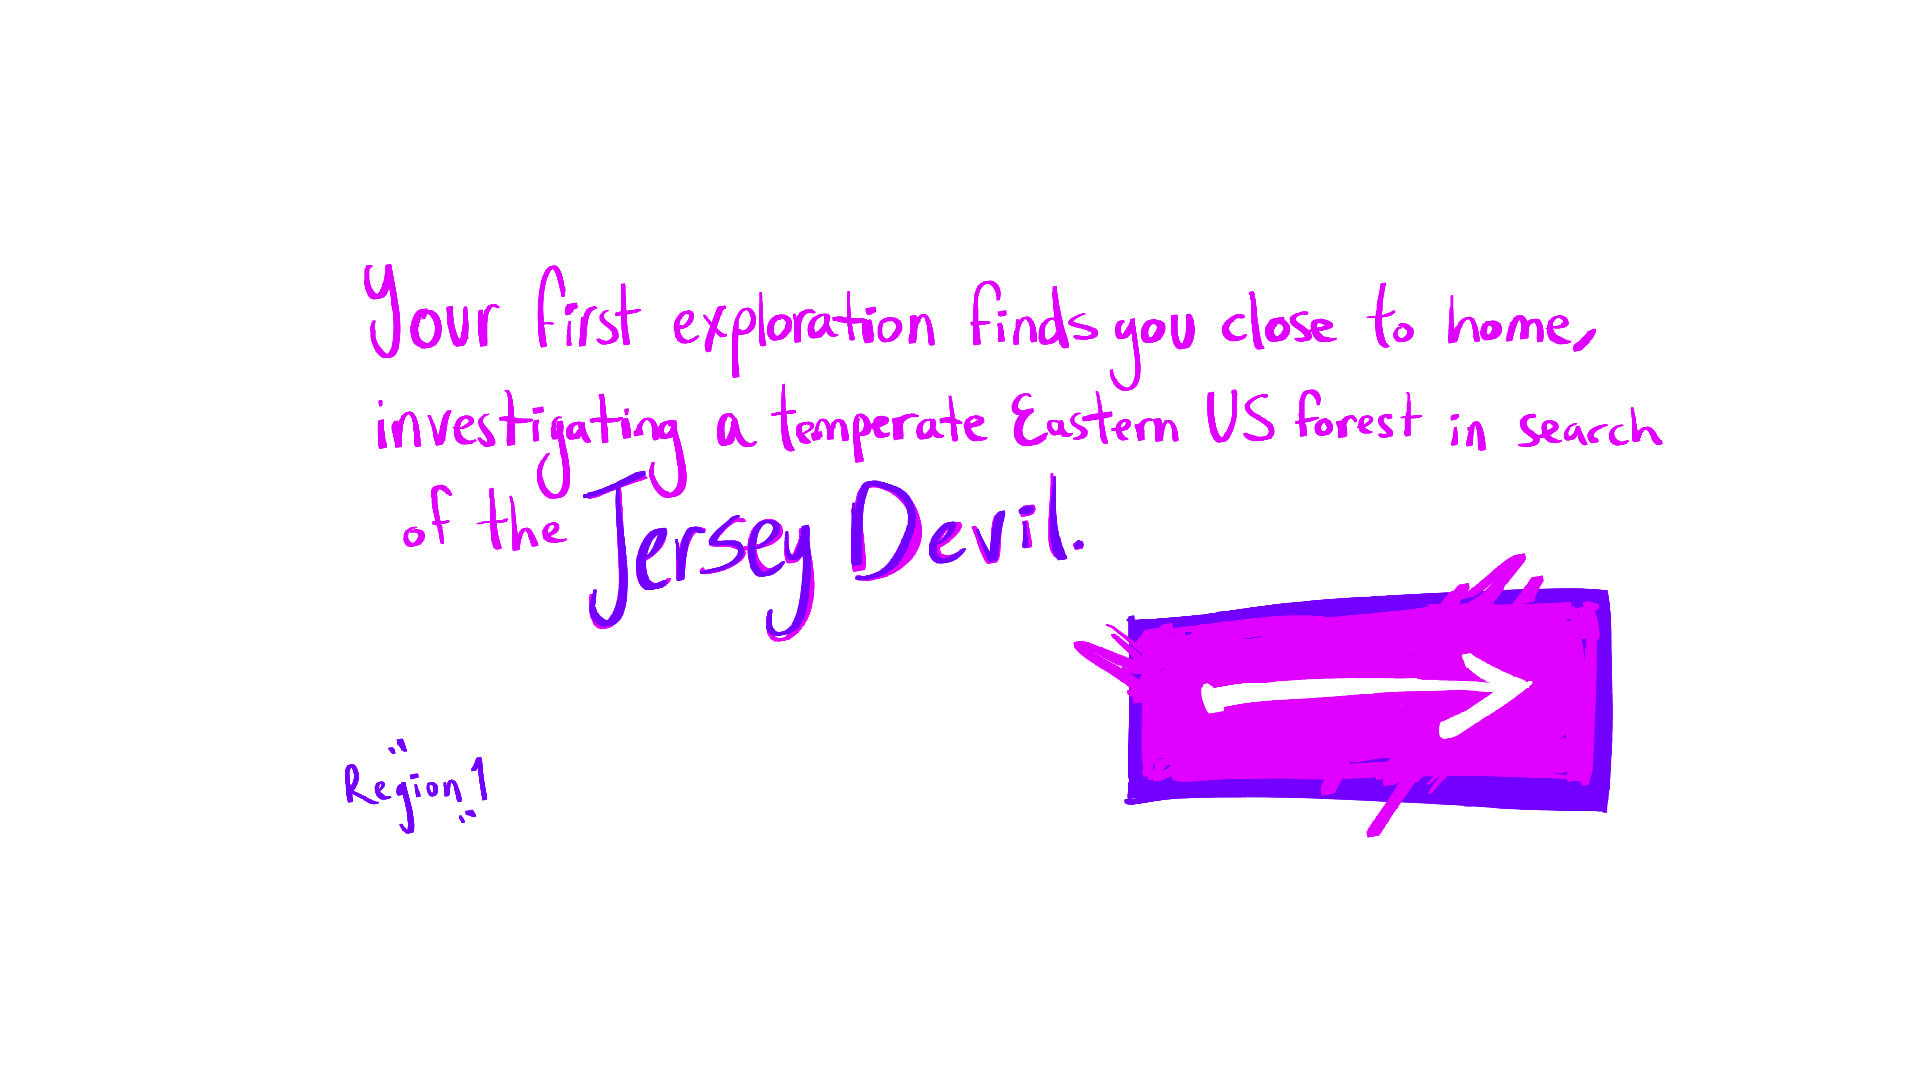 Your first exploration finds you close to home,
investigating a temperate Eastern US forest in search
of the Jersey Devil.
Region 1